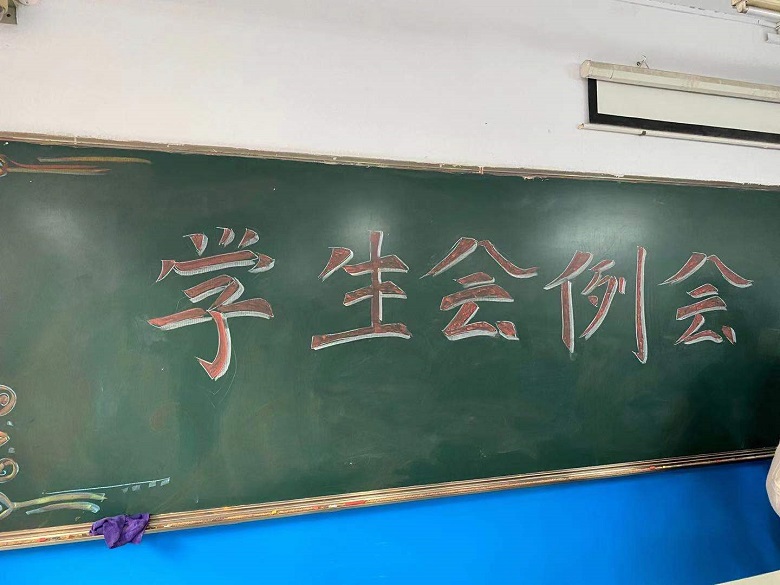 学生会例会